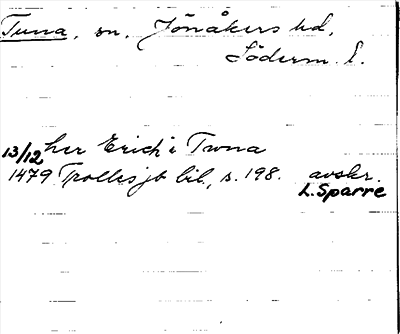 Tuna, sn, Jönåkers hd,
Söderm. l.
13/12 her Erich i Twna
1479 Trolles jb bil, s. 198. avskr.
L. Sparre